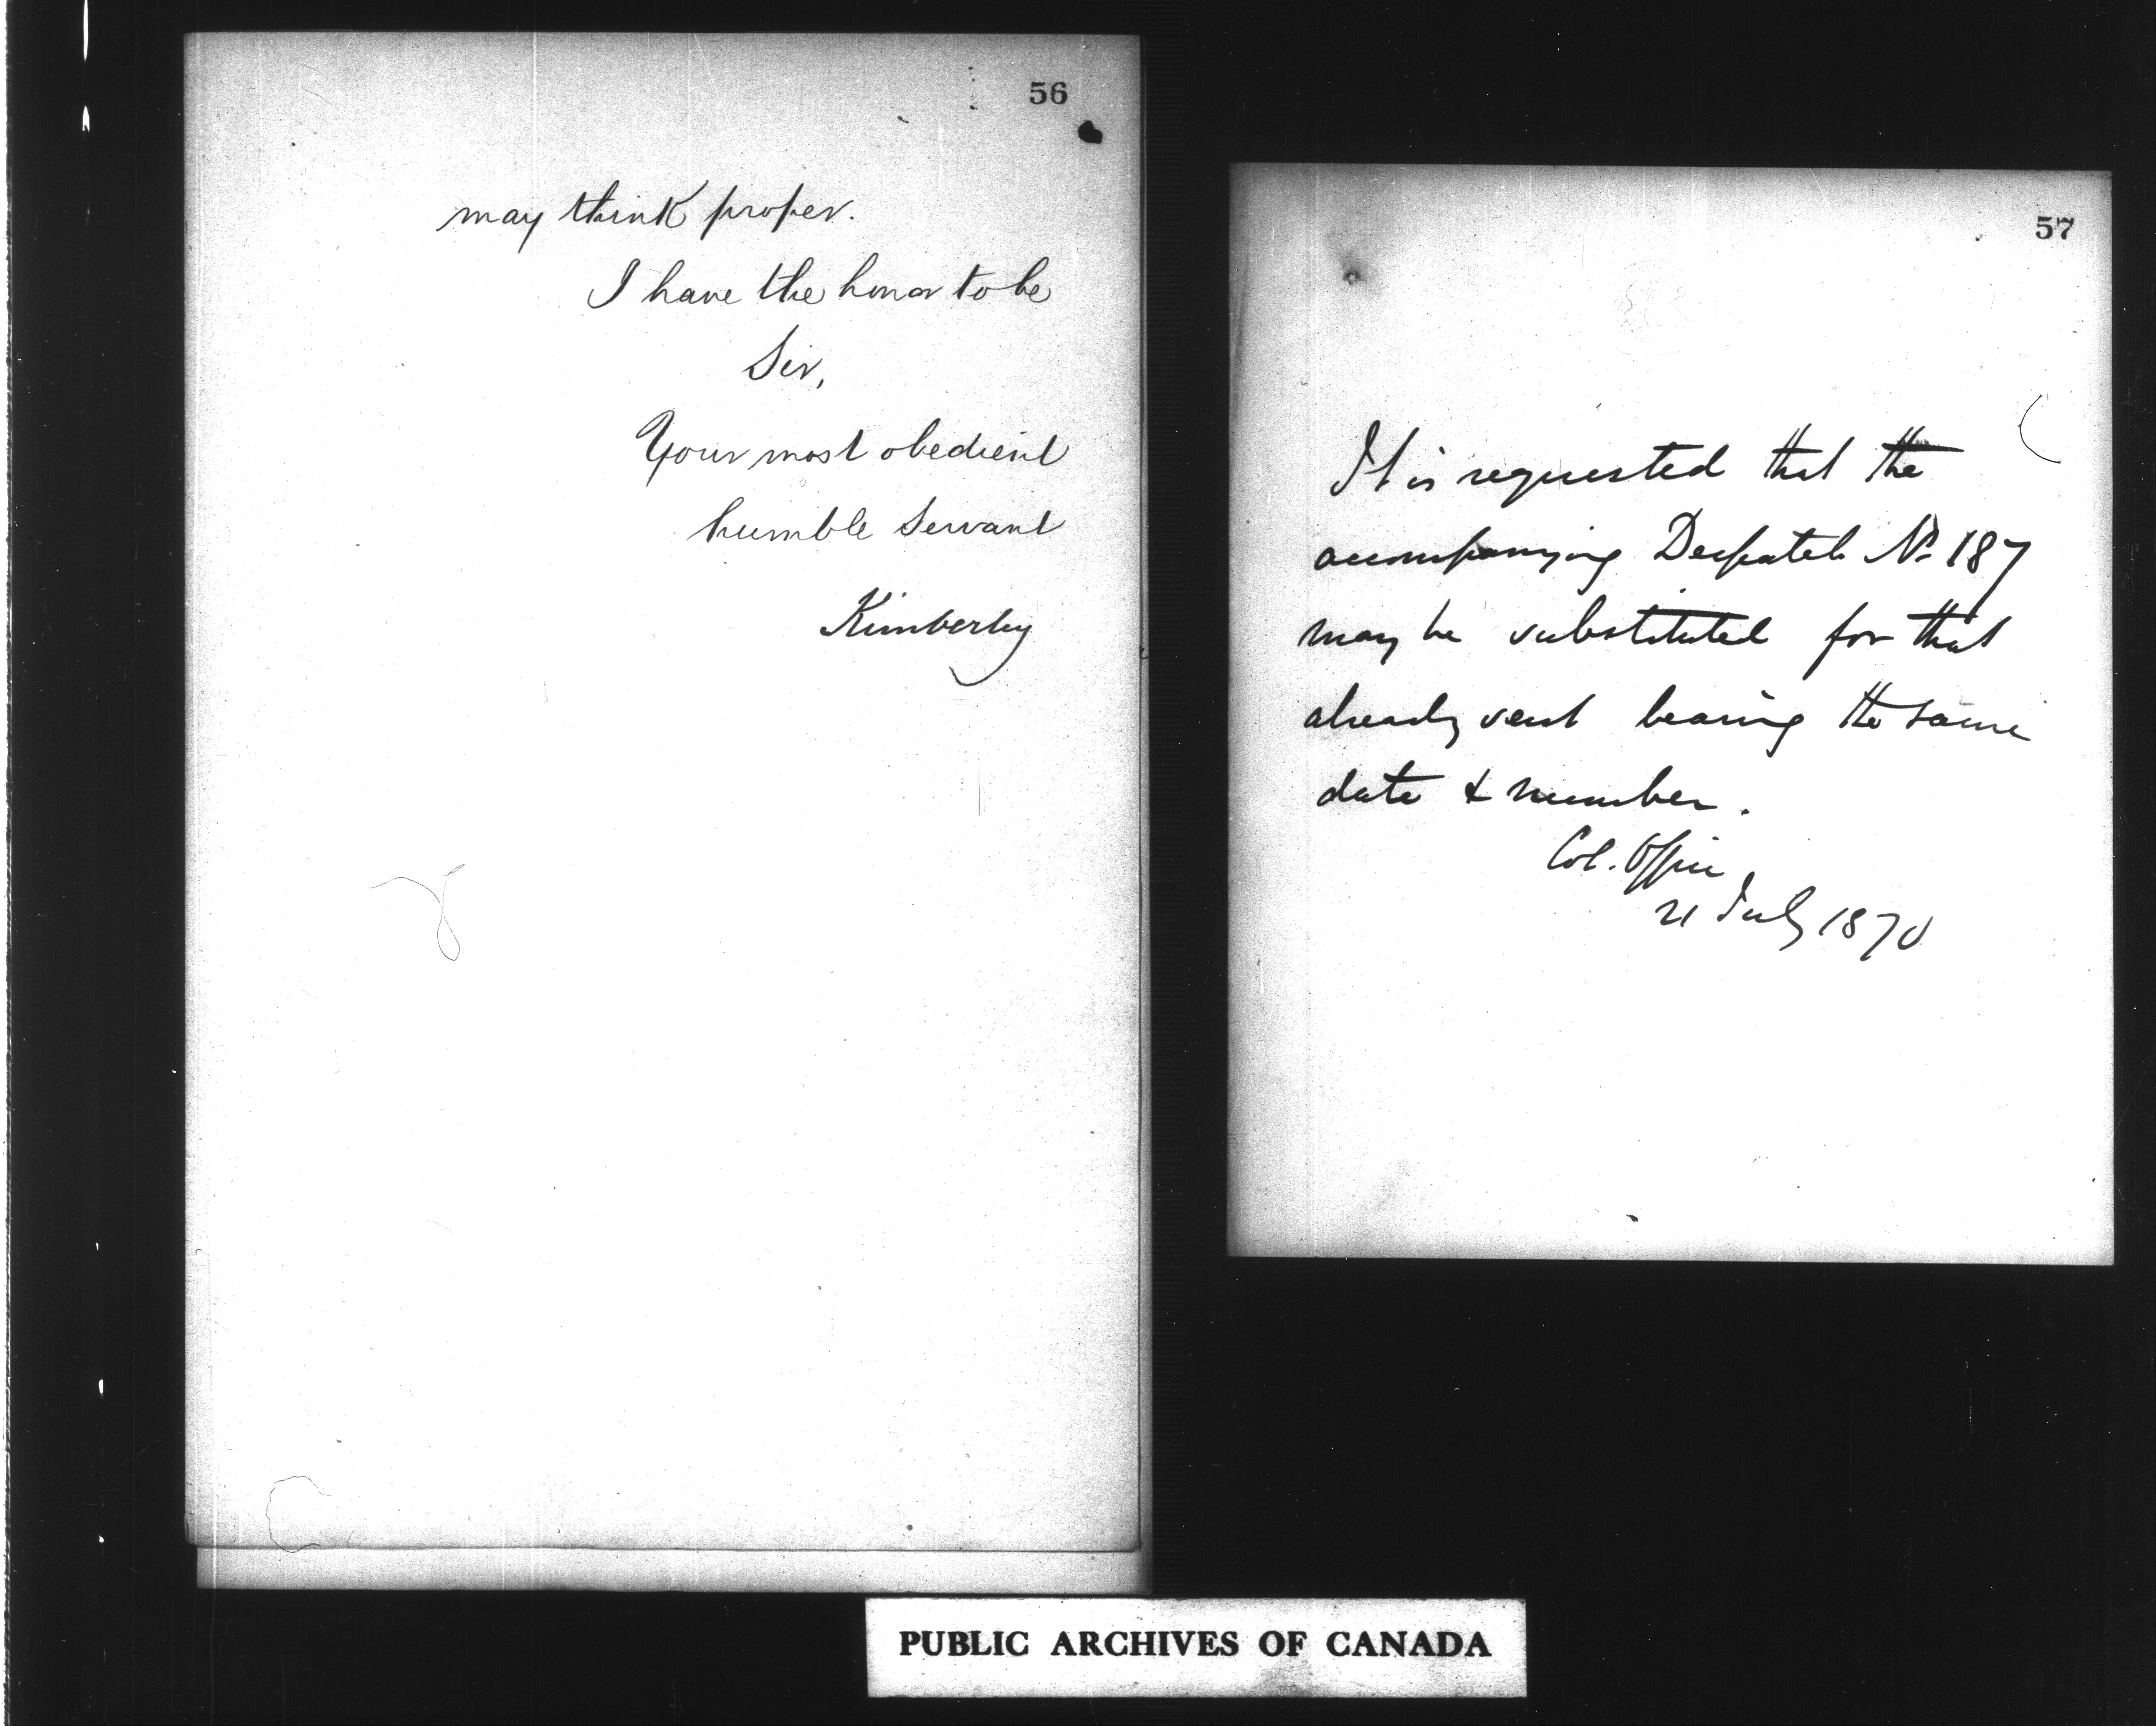 56
may think proper.
I have the honor to be
Sir,
Your most obedient
humble Servant
Kimberley
57
It is requested that the
accompanying Despatch No 187
may be substituted for that
already sent bearing the same
date & number.
Col. Office
21 July 1870
PUBLIC ARCHIVES OF CANADA